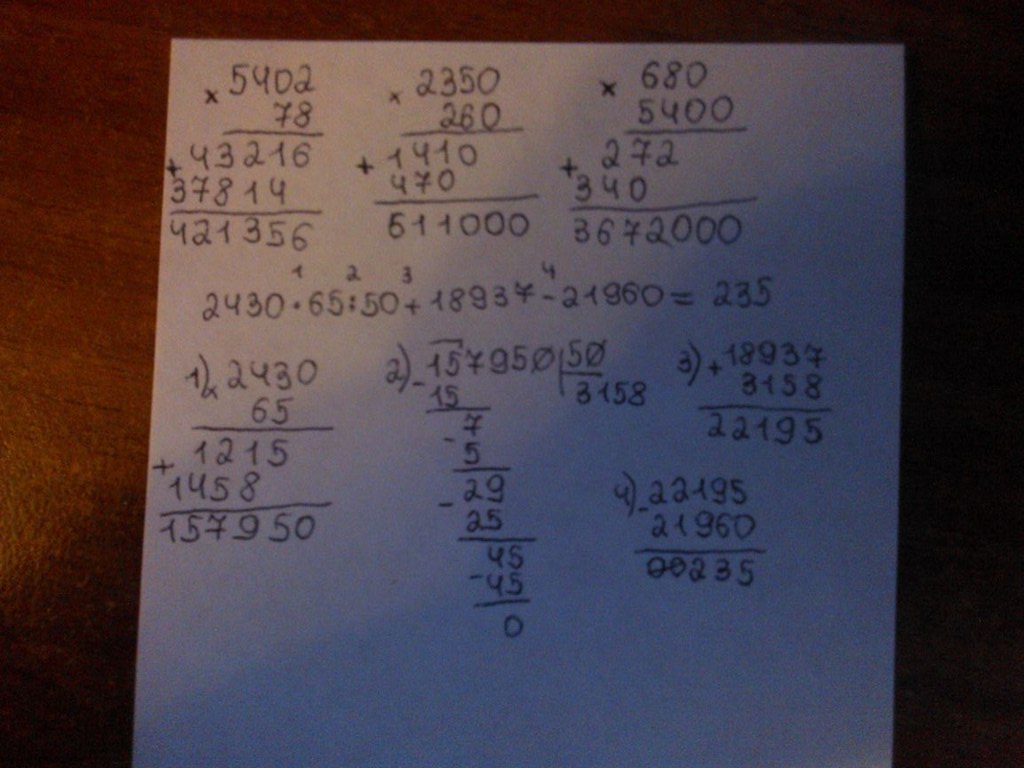 × 5402 × 2350 × 680
78 260 5400
+ 43216 + 1410 + 272
37814 470 340
421356 611000 3672000
1 2 3 4
2430 · 65 : 50 + 18937 - 21960 = 235
1) × 2430 2) - 157950 | 50 3) + 18937
65 15 3158 3158
+ 1215 - 7 22195
1458 5
157950 - 29 4) - 22195
25 21960
- 45 00235
45
0